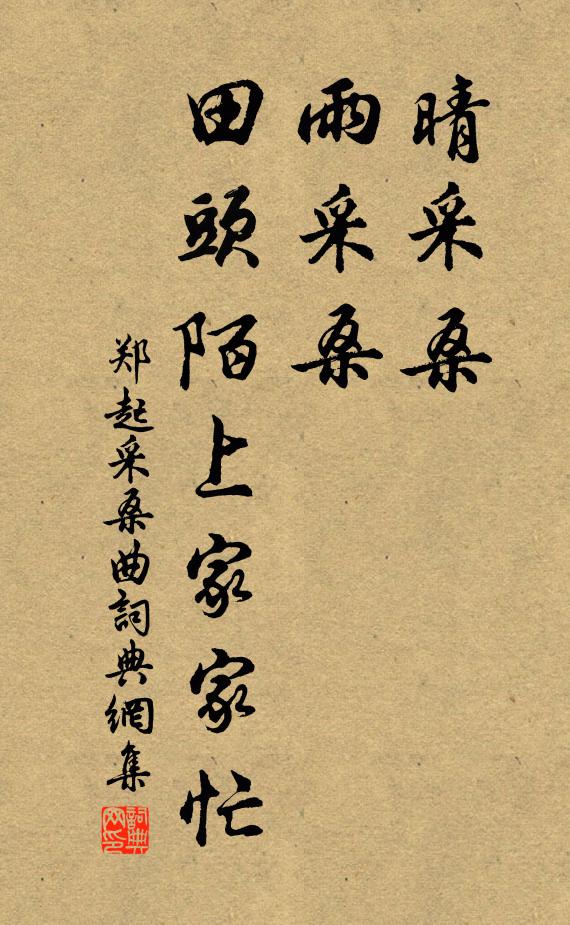 晴采桑
雨采桑
田頭陌上家家忙
郑起采桑曲詞典網集
詞典网印